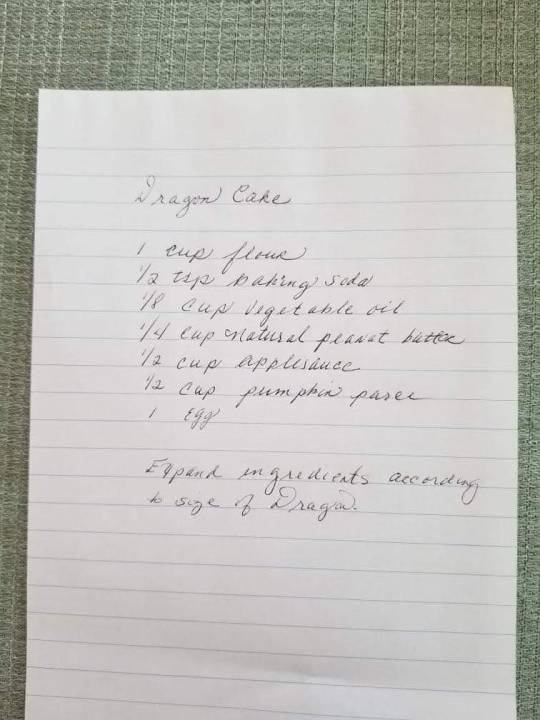 Dragon Cake
1 cup flour
1/2 tsp baking soda
1/8 cup vegetable oil
1/4 cup natural peanut butter
1/2 cup applesauce
1/2 cup pumpkin puree
1 egg
Expand ingredients according
to size of Dragon.